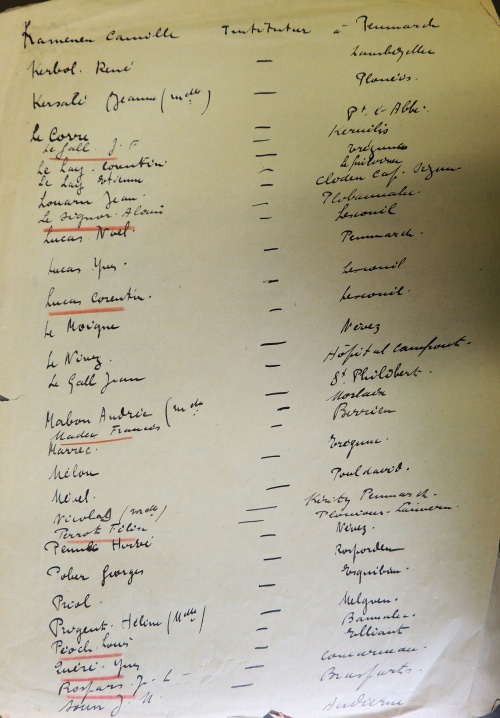 Kamenen Camille Instituteur à Penmarch
Kerbol. René — Lambézellec
Kersalé Jeanne (Mme) — Plonéis.
Le Corre — Pt. l'Abbé.
Le Gall J. F — Kernilis
Le Lay. Corentin — Trégunc
Le Lay Etienne — le Guilvinec
Louarn Jean — Cloden Cap. Sizun
Le Signor. Alain — Plobannalec
Lucas Noël. — Lesconil
Lucas Yves — Penmarch.
Lucas Corentin. — Lesconil
Le Moigne — Lesconil.
Le Ninez — Névez
Le Gall Jean — Hôpital Camfrout.
Mabon Andrée (Mme — St Philibert.
Madec Francès — Morlaix
Marrec. — Berrien
Mélou — Trégunc.
Mével. — Pouldavid.
Nicolas (Mme) — Kérity Penmarch.
Perrot Félix — Plonéour-Lanvern
Hervé — Névez.
Pober Georges — Rosporden
Priol. — Esquibien.
Prigent. Hélène (Mme) — Melgven.
Pioch. Louis — Bannalec
Quéré. Yves — Elliant
Rospars. J. L — Concarneau
J. M. — Brasparts.
Audierne